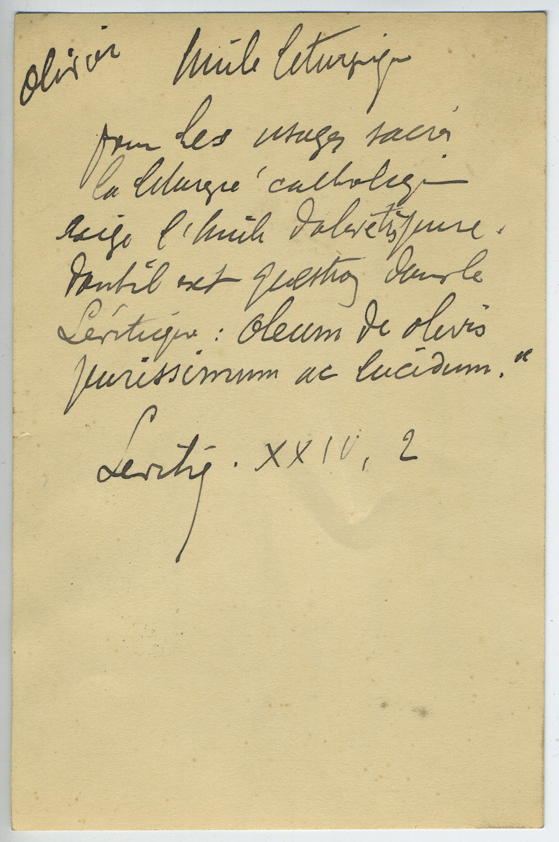 Olivier Huile liturgique
pour les usages sacrés
la liturgie catholique
exige l'huile d'olive très pure.
dont il est question dans le
Lévitique : Oleum de olivis
purissimum ac lucidum."
Levitiq. XXIV, 2